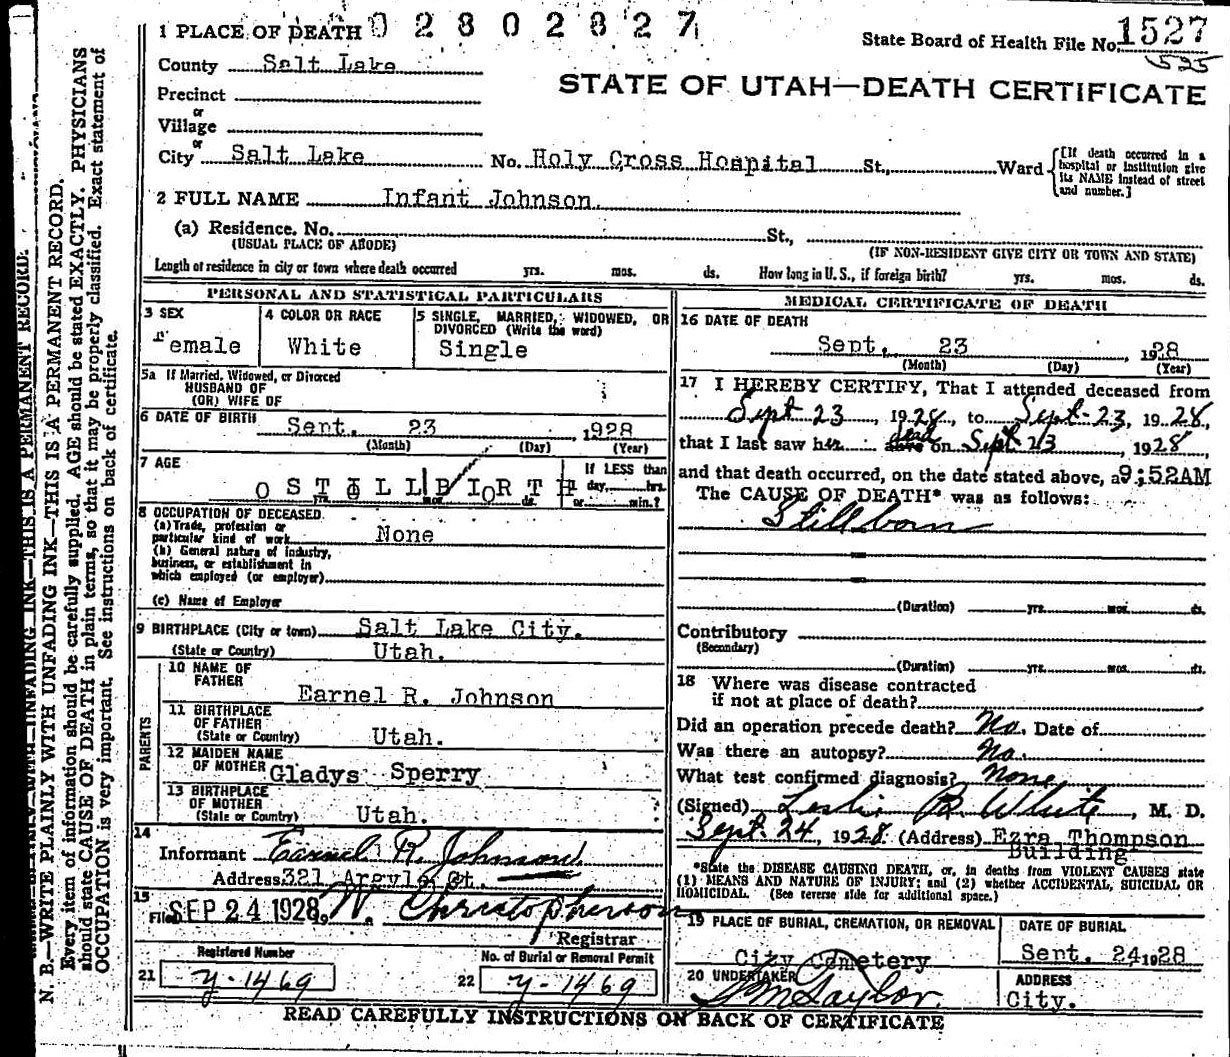 1 PLACE OF DEATH 02802827
State Board of Health File No. 1527
525
County Salt Lake
STATE OF UTAH—DEATH CERTIFICATE
Precinct
or
Village
or
City Salt Lake No. Holy Cross Hospital St., Ward
[If death occurred in a hospital or institution give its NAME instead of street and number.]
2 FULL NAME Infant Johnson
(a) Residence. No. St.,
(USUAL PLACE OF ABODE) (IF NON-RESIDENT GIVE CITY OR TOWN AND STATE)
Length of residence in city or town where death occurred yrs. mos. ds. How long in U. S., if foreign birth? yrs. mos. ds.
PERSONAL AND STATISTICAL PARTICULARS
3 SEX
Female
4 COLOR OR RACE
White
5 SINGLE, MARRIED, WIDOWED, OR
DIVORCED (Write the word)
Single
5a If Married, Widowed, or Divorced
HUSBAND OF
(OR) WIFE OF
6 DATE OF BIRTH Sept. 23, 1928
(Month) (Day) (Year)
7 AGE
If LESS than
day, hrs.
or min.?
0 STILLBIORTH
yrs. mos. ds.
8 OCCUPATION OF DECEASED
(a) Trade, profession or
particular kind of work None
(b) General nature of industry,
business, or establishment in
which employed (or employer)
(c) Name of Employer
9 BIRTHPLACE (City or town) Salt Lake City.
(State or Country) Utah.
PARENTS
10 NAME OF
FATHER
Earnel R. Johnson
11 BIRTHPLACE
OF FATHER
(State or Country) Utah.
12 MAIDEN NAME
OF MOTHER Gladys Sperry
13 BIRTHPLACE
OF MOTHER
(State or Country) Utah.
14
Informant Earnel R. Johnson
Address 321 Argyle Ct.
15
Filed SEP 24 1928, 19 W. Christopherson
Registrar
Registered Number
21 y-1469
No. of Burial or Removal Permit
22 y-1469
MEDICAL CERTIFICATE OF DEATH
16 DATE OF DEATH
Sept. 23, 1928
(Month) (Day) (Year)
17 I HEREBY CERTIFY, That I attended deceased from
Sept 23, 1928, to Sept-23, 1928,
that I last saw her dead alive on Sept 23, 1928,
and that death occurred, on the date stated above, at 9:52AM
The CAUSE OF DEATH* was as follows:
Stillborn
(Duration) yrs. mos. ds.
Contributory
(Secondary)
(Duration) yrs. mos. ds.
18 Where was disease contracted
if not at place of death?
Did an operation precede death? No. Date of
Was there an autopsy? No.
What test confirmed diagnosis? None
(Signed) Leslie B. White, M. D.
Sept. 24, 1928 (Address) Ezra Thompson
Building
*State the DISEASE CAUSING DEATH, or, in deaths from VIOLENT CAUSES state
(1) MEANS AND NATURE OF INJURY; and (2) whether ACCIDENTAL, SUICIDAL OR
HOMICIDAL. (See reverse side for additional space.)
19 PLACE OF BURIAL, CREMATION, OR REMOVAL
City Cemetery
DATE OF BURIAL
Sept. 24 1928
20 UNDERTAKER
S M Taylor
ADDRESS
City.
READ CAREFULLY INSTRUCTIONS ON BACK OF CERTIFICATE
N. B.—WRITE PLAINLY WITH UNFADING INK—THIS IS A PERMANENT RECORD.
Every item of information should be carefully supplied. AGE should be stated EXACTLY. PHYSICIANS
should state CAUSE OF DEATH in plain terms, so that it may be properly classified. Exact statement of
OCCUPATION is very important. See instructions on back of certificate.